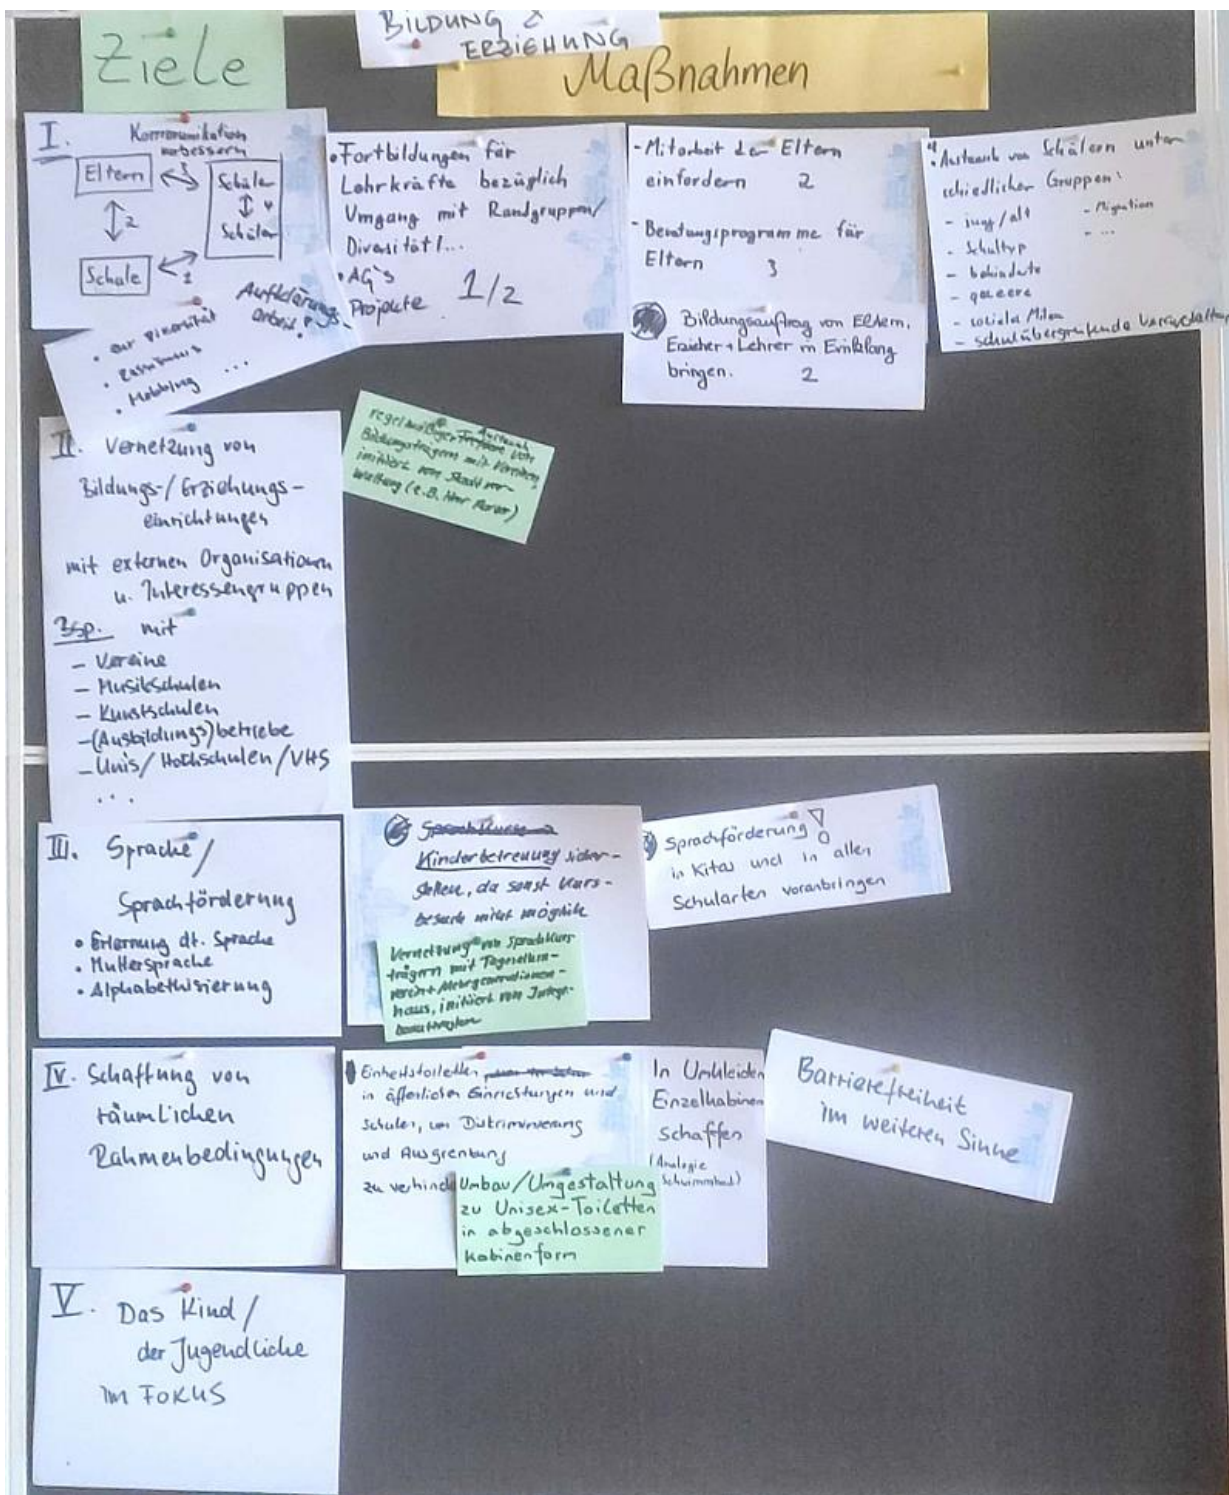 BILDUNG &
ERZIEHUNG
Ziele
Maßnahmen
I. Kommunikation
verbessern
Eltern
3
Schüler
4
Schüler
2
Schule
1
Aufklärungs-
arbeit
• zur Diversität
• Rassismus
• Mobbing ...
• Fortbildungen für
Lehrkräfte bezüglich
Umgang mit Randgruppen/
Diversität/...
• AG's
Projekte 1/2
- Mitarbeit der Eltern
einfordern 2
- Beratungsprogramme für
Eltern 3
Bildungsauftrag von Eltern,
Erzieher + Lehrer in Einklang
bringen. 2
4
• Austausch von Schülern unter-
schiedlicher Gruppen:
- jung/alt
- Migration
- Schultyp
- ...
- behinderte
- queere
- soziale Milieu
- schulübergreifende
II. Vernetzung von
Bildungs-/Erziehungs-
einrichtungen
mit externen Organisationen
u. Interessengruppen
Bsp. mit
- Vereine
- Musikschulen
- Kunstschulen
- (Ausbildungs)betriebe
- Unis/Hochschulen/VHS
...
regelmäßiger Austausch von
Bildungsträgern mit Vereinen,
initiiert von Stadtver-
waltung (z.B. Herr
III. Sprache/
Sprachförderung
• Erlernung dt. Sprache
• Muttersprache
• Alphabethisierung
Sprachkurse
Kinderbetreuung sicher-
stellen, da sonst Kurs-
besuch nicht möglich
Vernetzung von Sprachkurs-
trägern mit Tageseltern-
verein + Mehrgenerationen-
haus, initiiert von Integr.
beauftragten
Sprachförderung!
in Kitas und in allen
Schularten voranbringen
IV. Schaffung von
räumlichen
Rahmenbedingungen
Einheitstoiletten
in öffentlichen Einrichtungen und
Schulen, um Diskriminierung
und Ausgrenzung
zu verhind
Umbau/Umgestaltung
zu Unisex-Toiletten
in abgeschlossener
Kabinenform
In Umkleiden
Einzelkabinen
schaffen
(Analogie
Schwimmbad)
Barrierefreiheit
im weiteren Sinne
V. Das Kind/
der Jugendliche
im FOKUS